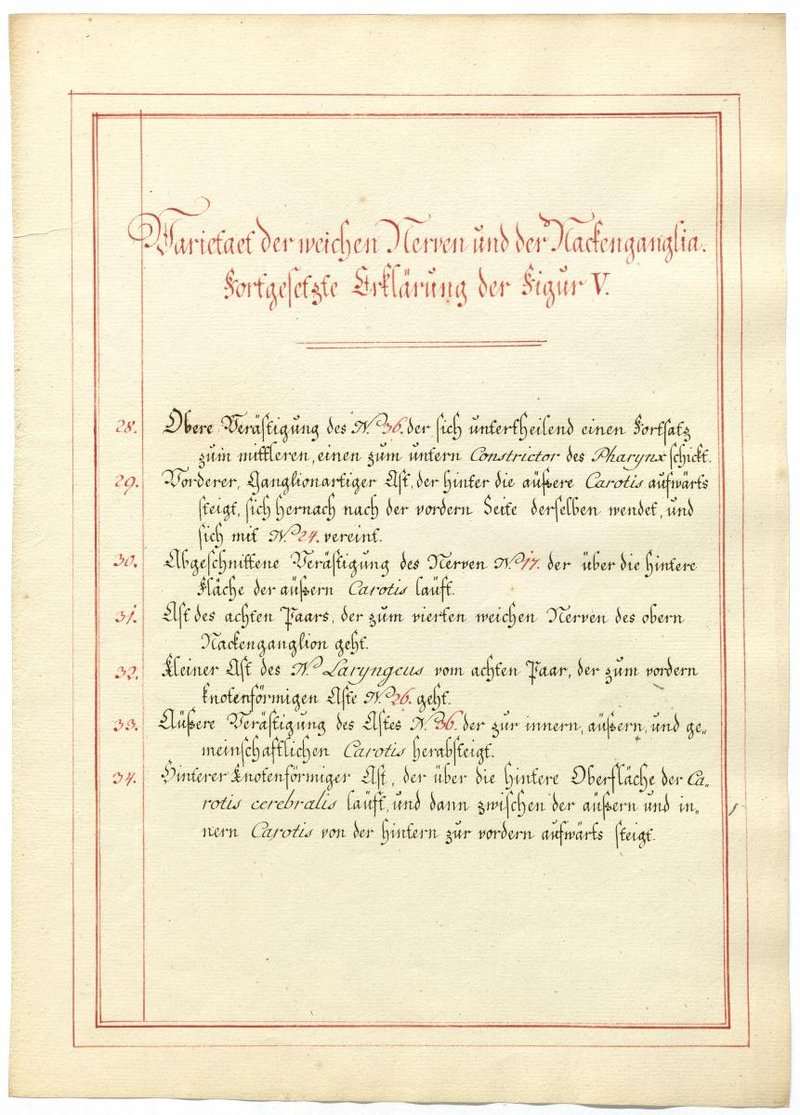 Varietaet der weichen Nerven und der Nackenganglia.
Fortgesetzte Erklärung der Figur V.
28. Obere Verästigung des N. 36. der sich untertheilend einen Fortsatz
zum mittleren, einen zum untern Constrictor des Pharynx schickt.
29. Vorderer, Ganglionartiger Ast, der hinter die äußere Carotis aufwärts
steigt, sich hernach nach der vordern Seite derselben wendet, und
sich mit N. 24. vereint.
30. Abgeschnittene Verästigung des Nerven N. 17. der über die hintere
Fläche der äußern Carotis läuft.
31. Ast des achten Paars, der zum vierten weichen Nerven des obern
Nackenganglion geht.
32. Kleiner Ast des N. Laryngeus vom achten Paar, der zum vordern
knotenförmigen Aste N. 26. geht.
33. Äußere Verästigung des Astes N. 36. der zur innern, äußern, und ge„
meinschaftlichen Carotis herabsteigt.
34. Hinterer knotenförmiger Ast, der über die hintere Oberfläche der Ca„
rotis cerebralis läuft, und dann zwischen der äußern und in„
nern Carotis von der hintern zur vordern aufwärts steigt.